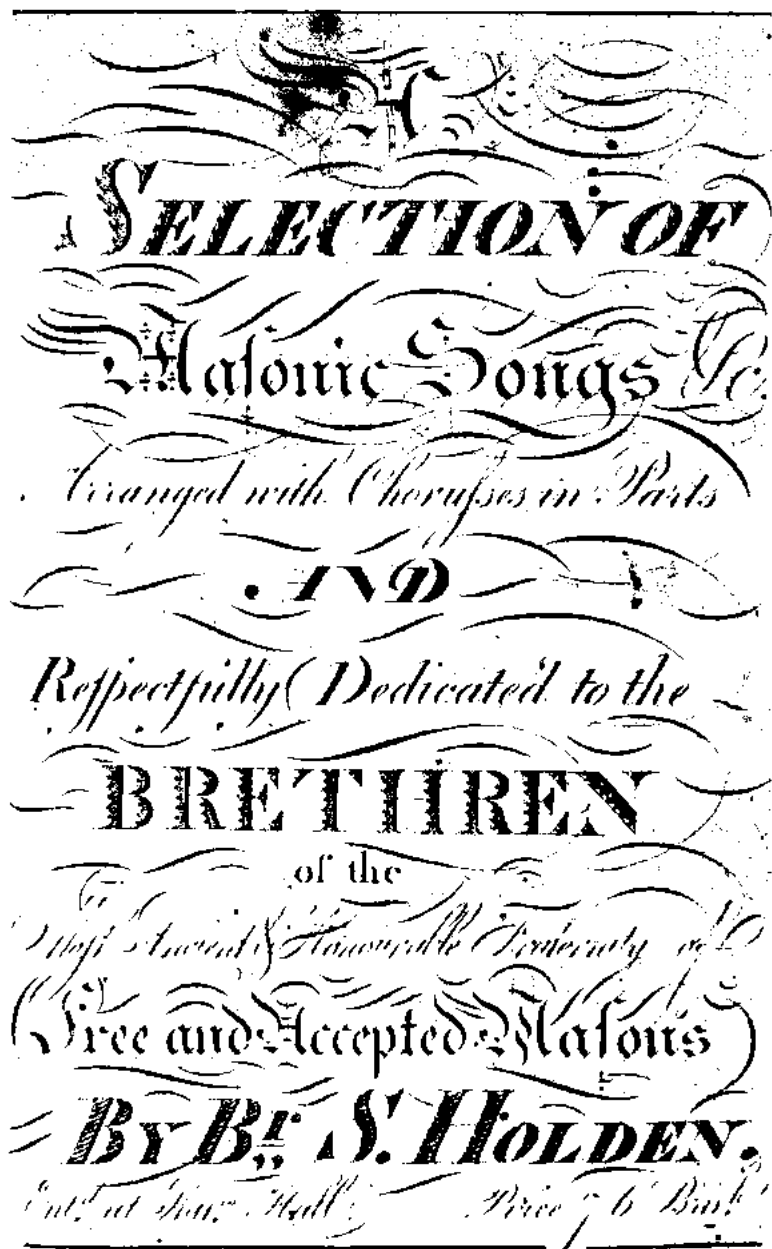 A
SELECTION OF
Maſonic Songs &c.
Arranged with Choruſses in Parts
AND
Reſpectfully Dedicated to the
BRETHREN
of the
Most Ancient & Honourable Fraternity of
Free and Accepted Maſons
BY BR. S. HOLDEN.
Entd. at Staʳ. Hall Price 7/6 Brit.